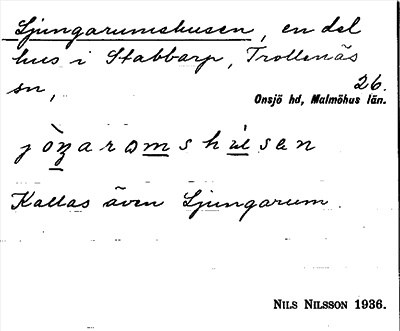 Ljungarumshusen, en del
hus i Stabbarp, Trollenäs
sn,
26.
Onsjö hd, Malmöhus län.
jòŋaromshusen
Kallas även Ljungarum.
NILS NILSSON 1936.